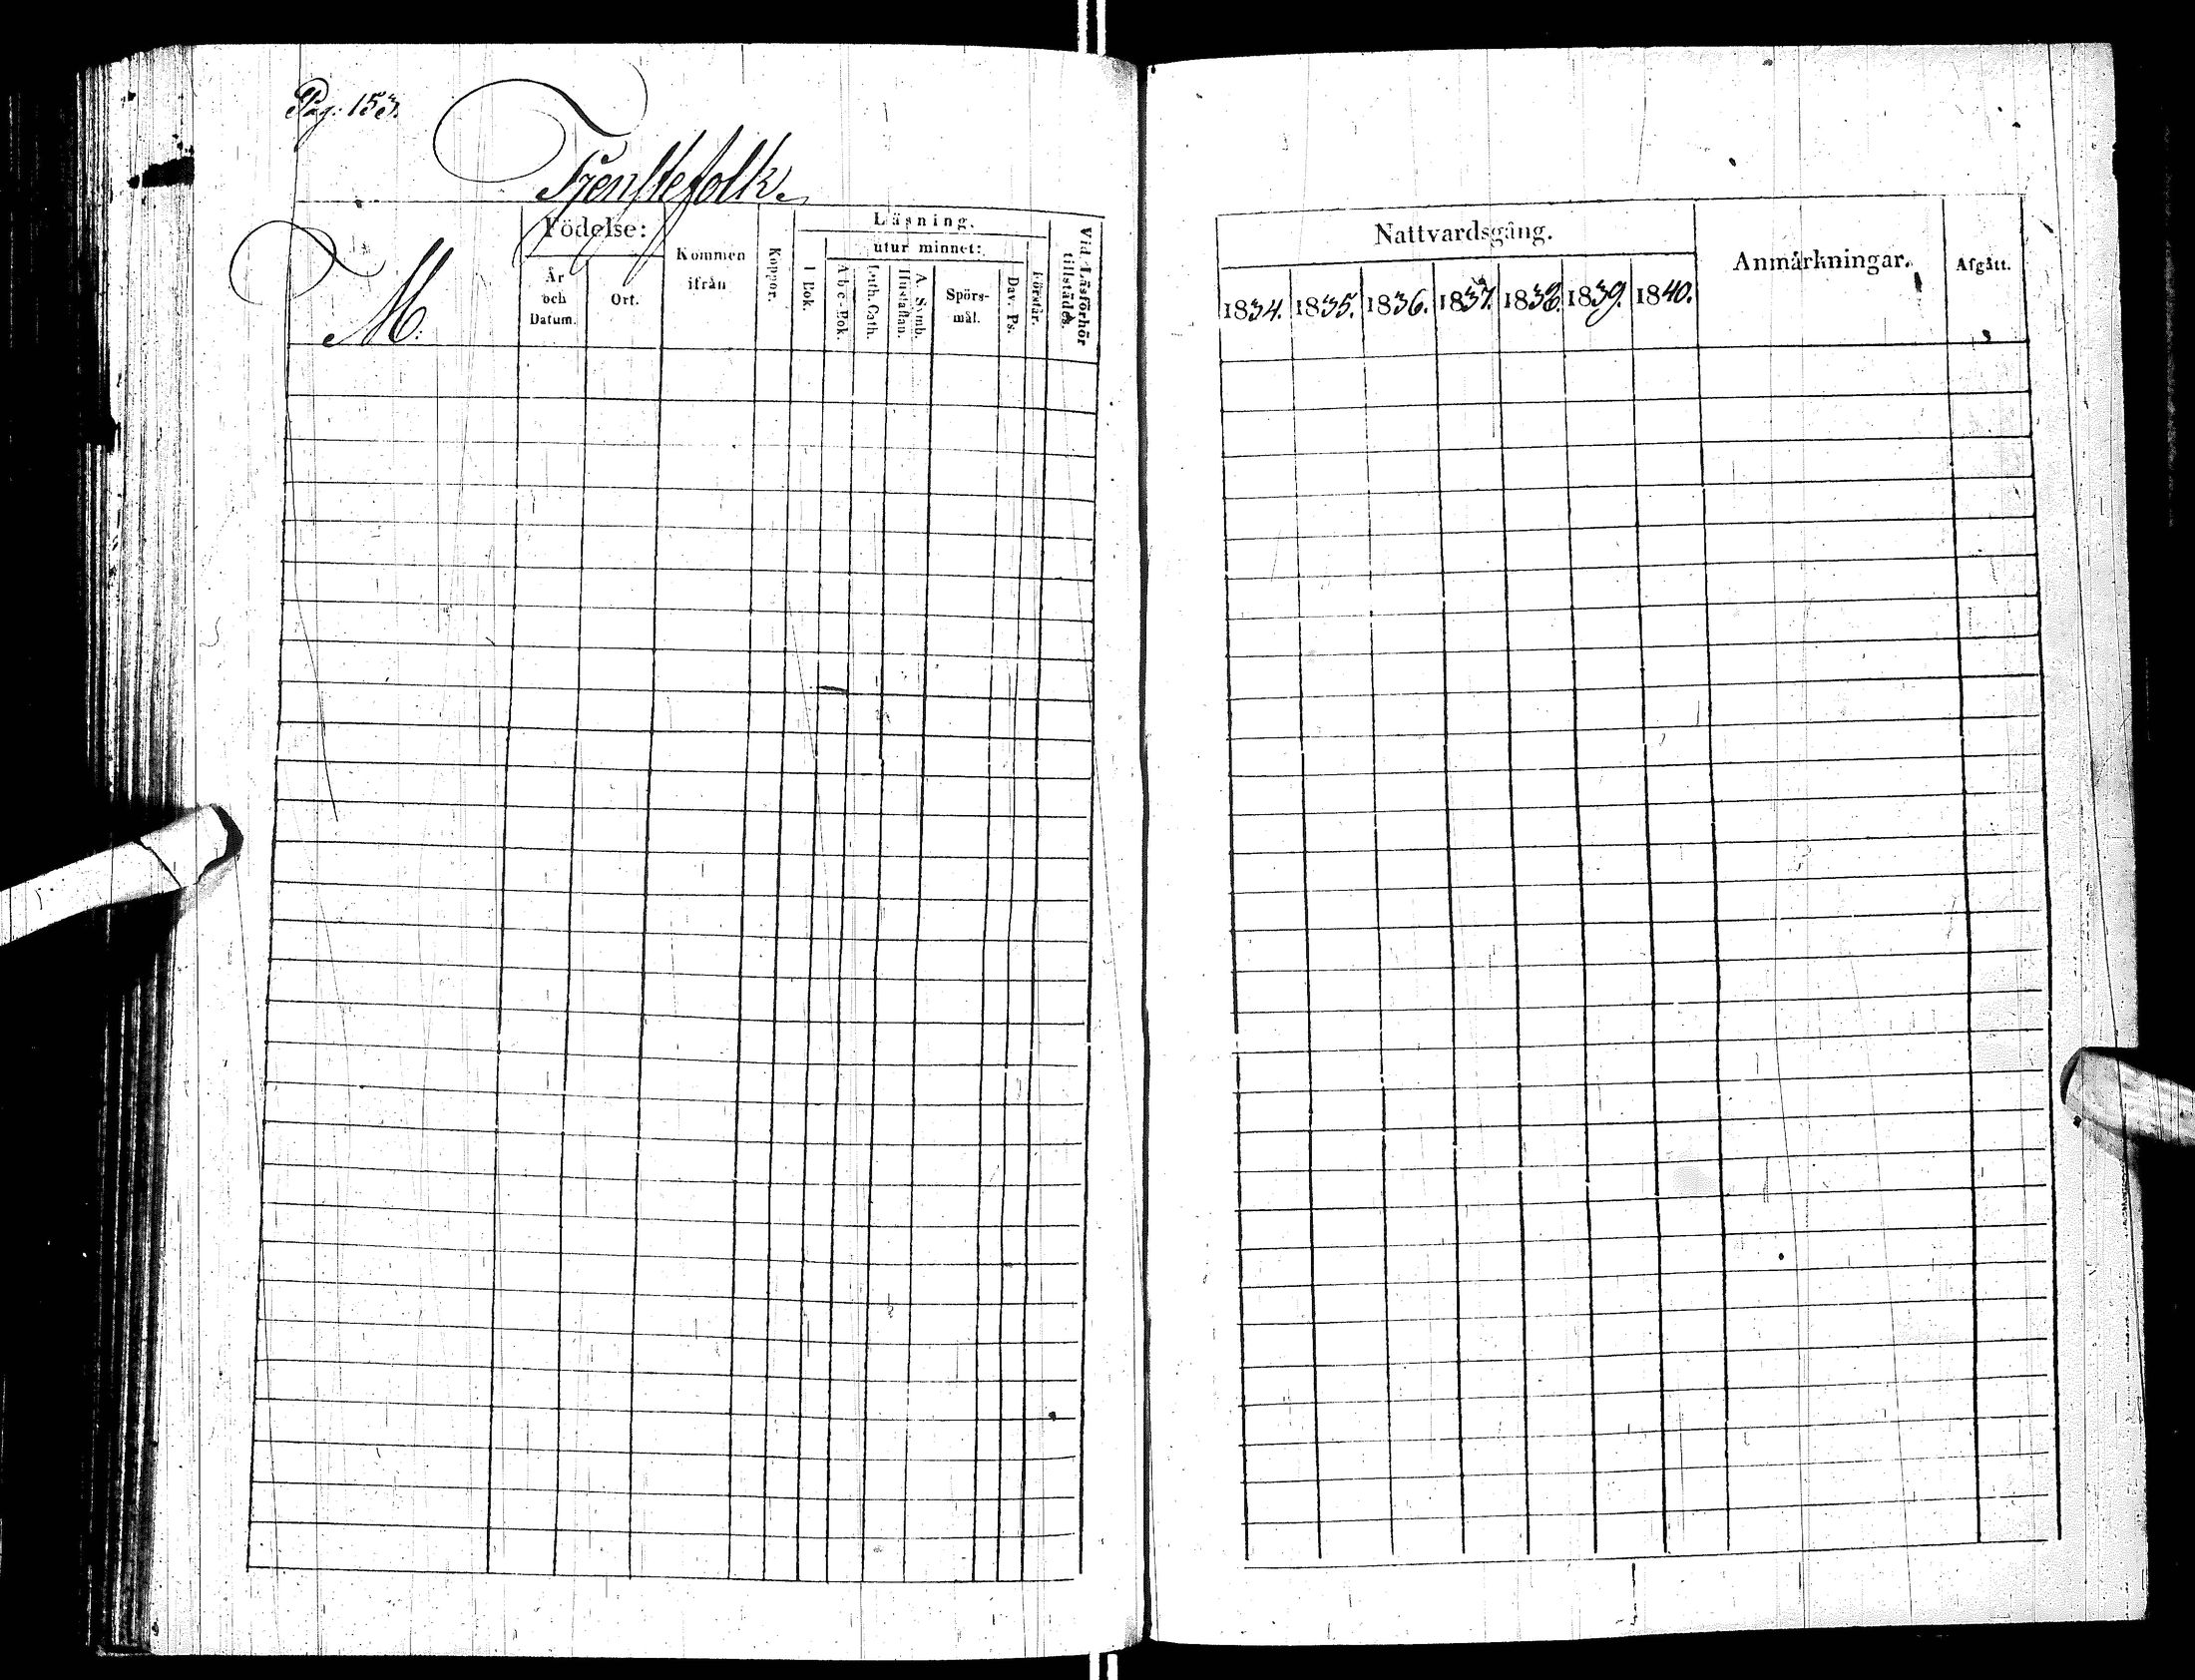 Pag: 153.
Tjenstefolk.
M.
Födelse:
År
och
Datum.
Ort.
Kommen
ifrån
Koppor.
Läsning.
I Bok.
utur minnet:
A b c-Bok.
Luth. Cath.
Hustaflan.
A. Symb.
Spörs-
mål.
Dav. Ps.
Förstår.
Vid Läsförhör
tillstädes.
Nattvardsgång.
1834. 1835. 1836. 1837. 1838. 1839. 1840.
Anmärkningar.
Afgått.